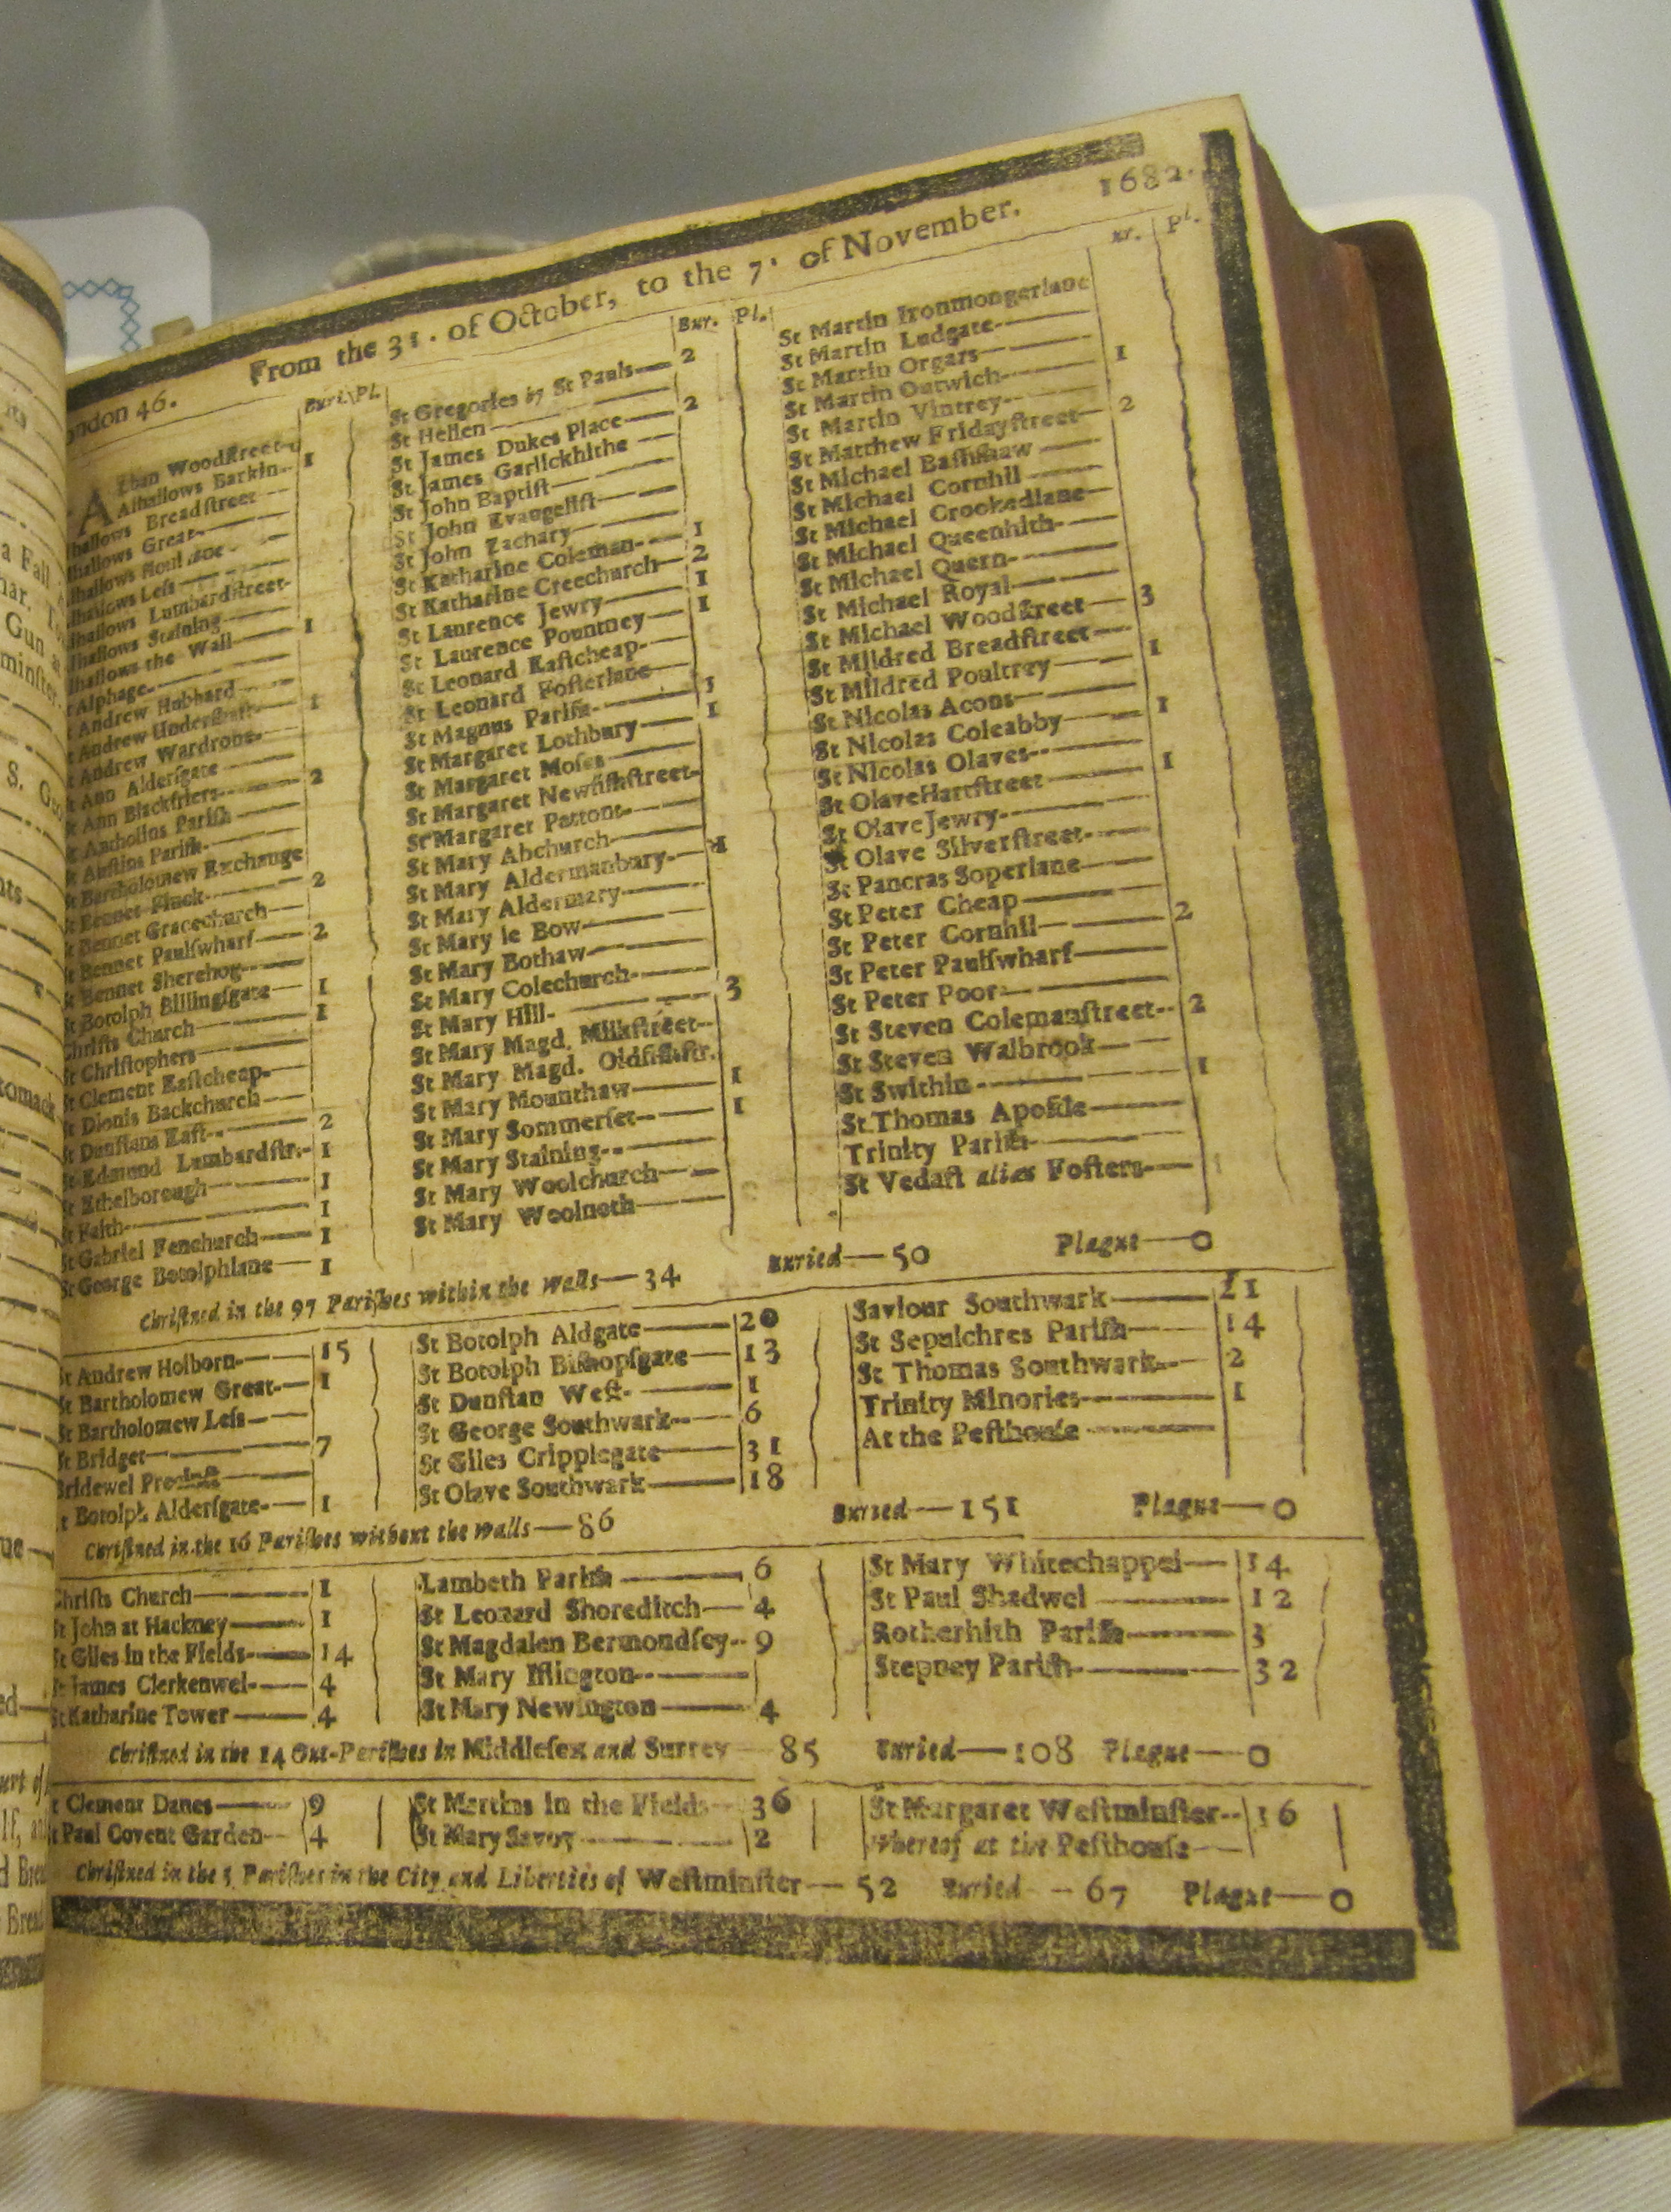 From the 31. of October, to the 7. of November. 1682.
ondon 46.
Buri. Pl.
Alban Woodstreet
Alhallows Barkin 1
lhallows Breadſtreet
lhallows Great
lhallows
lhallows Leſs
lhallows Lumbardſtreet
lhallows Staining
lhallows the Wall 1
t Alphage
t Andrew Hubbard
t Andrew 1
t Andrew Wardrobe
t Ann Alderſgate
t Ann Blackfriers 2
t Antholins Pariſh
t Auſtins Pariſh
t Bartholomew Exchange
t Bennet Finck 2
t Bennet Gracechurch
t Bennet Paulſwharf 2
t Bennet Sherehog
t Botolph Billingſgate 1
Chriſts Church 1
St Chriſtophers
St Clement Eaſtcheap
St Dionis Backchurch
St Dunſtans Eaſt 2
St Edmund Lumbardſtr. 1
St Ethelborough 1
St Faith 1
St Gabriel Fenchurch 1
St George Botolphlane 1
Bur. Pl.
St Gregories by St Pauls 2
St Hellen
St James Dukes Place 2
St James Garlickhithe
St John Baptiſt
St John Evangeliſt
St John Zachary
St Katharine Coleman 1
St Katharine Creechurch 2
St Laurence Jewry 1
St Laurence Pountney 1
St Leonard Eaſtcheap
St Leonard Foſterlane
St Magnus Pariſh
St Margaret Lothbury 1
St Margaret Moſes
St Margaret Newfiſhſtreet
St Margaret Pattons
St Mary Abchurch
St Mary Aldermanbury
St Mary Aldermary
St Mary le Bow
St Mary Bothaw
St Mary Colechurch
St Mary Hill 3
St Mary Magd. Milkſtreet
St Mary Magd. Oldfiſhſtr.
St Mary Mounthaw 1
St Mary Sommerſet 1
St Mary Staining
St Mary Woolchurch
St Mary Woolnoth
ur. Pl.
St Martin Ironmongerlane
St Martin Ludgate
St Martin Orgars
St Martin Outwich 1
St Martin Vintrey
St Matthew Fridayſtreet 2
St Michael Baſſiſhaw
St Michael Cornhil
St Michael Crookedlane
St Michael Queenhith
St Michael Quern
St Michael Royal
St Michael Woodſtreet 3
St Mildred Breadſtreet
St Mildred Poultrey 1
St Nicolas Acons
St Nicolas Coleabby 1
St Nicolas Olaves
St Olave Hartſtreet 1
St Olave Jewry
St Olave Silverſtreet
St Pancras Soperlane
St Peter Cheap
St Peter Cornhil 2
St Peter Paulſwharf
St Peter Poor
St Steven Colemanſtreet 2
St Steven Walbrook
St Swithin 1
St Thomas Apoſtle
Trinity Pariſh
St Vedaſt alias Foſters
Chriſtned in the 97 Pariſhes within the walls—34 Buried—50 Plague—0
St Andrew Holborn 15
St Bartholomew Great 1
St Bartholomew Leſs
St Bridget 7
Bridewel Precinct
St Botolph Alderſgate 1
St Botolph Aldgate 20
St Botolph Biſhopſgate 13
St Dunſtan Weſt 1
St George Southwark 6
St Giles Cripplegate 31
St Olave Southwark 18
Saviour Southwark 21
St Sepulchres Pariſh 14
St Thomas Southwark 2
Trinity Minories 1
At the Peſthouſe
Chriſtned in the 16 Pariſhes without the walls—86 Buried—151 Plague—0
Chriſts Church 1
St John at Hackney 1
St Giles in the Fields 14
St James Clerkenwel 4
St Katharine Tower 4
Lambeth Pariſh 6
St Leonard Shoreditch 4
St Magdalen Bermondſey 9
St Mary Iſlington
St Mary Newington 4
St Mary Whitechappel 14
St Paul Shadwel 12
Rotherhith Pariſh 3
Stepney Pariſh 32
Chriſtned in the 14 Out-Pariſhes in Middleſex and Surrey 85 Buried—108 Plague—0
t Clement Danes 9
t Paul Covent Garden 4
St Martins in the Fields 36
St Mary Savoy 2
St Margaret Weſtminſter 16
Whereof at the Peſthouſe
Chriſtned in the 5 Pariſhes in the City and Liberties of Weſtminſter—52 Buried—67 Plague—0